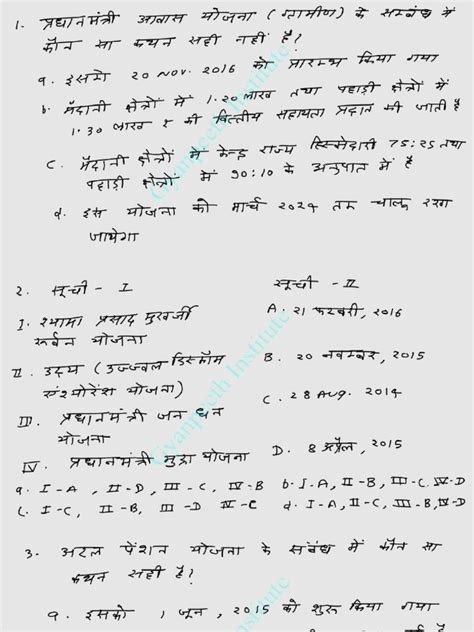 1. प्रधानमंत्री आवास योजना (ग्रामीण) के सम्बंध में
कौन सा कथन सही नहीं है?
a. इसको 20 NOV. 2016 को प्रारम्भ किया गया
b. मैदानी क्षेत्रों में 1.20 लाख तथा पहाड़ी क्षेत्रों में
1.30 लाख ₹ की वित्तीय सहायता प्रदान की जाती है
c. मैदानी क्षेत्रों में केन्द्र राज्य हिस्सेदारी 75:25 तथा
पहाड़ी क्षेत्रों में 90:10 के अनुपात में है
d. इस योजना को मार्च 2024 तक चालू रखा
जायेगा
2. सूची - I सूची - II
I. श्यामा प्रसाद मुखर्जी A. 21 फरवरी, 2016
रूर्बन योजना
II. उदय (उज्जवल डिस्कॉम B. 20 नवम्बर, 2015
एश्योरेंश योजना) C. 28 Aug. 2014
III. प्रधानमंत्री जन धन
योजना
IV. प्रधानमंत्री मुद्रा योजना D. 8 अप्रैल, 2015
a. I-A, II-D, III-C, IV-B b. I-A, II-B, III-C, IV-D
c. I-C, II-B, III-D IV-C d. I-A, II-C, III-B, IV-D
3. अटल पेंशन योजना के संबंध में कौन सा
कथन सही है?
a. इसको 1 जून, 2015 को शुरू किया गया
Gyanpeeth Institute
Gyanpeeth Institute